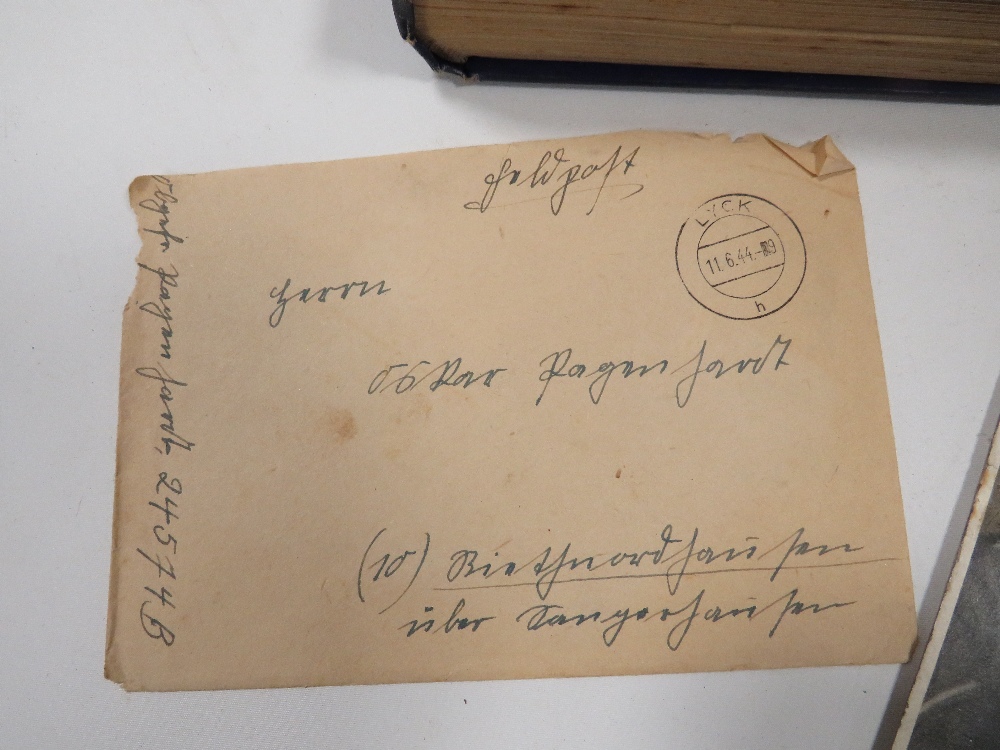 Feldpost
LYCK
11.6.44.-09
h
Herrn
Oskar Pagenhardt
(10) Riethnordhausen
über Sangerhausen
Obgefr. Pagenhardt, 24574B